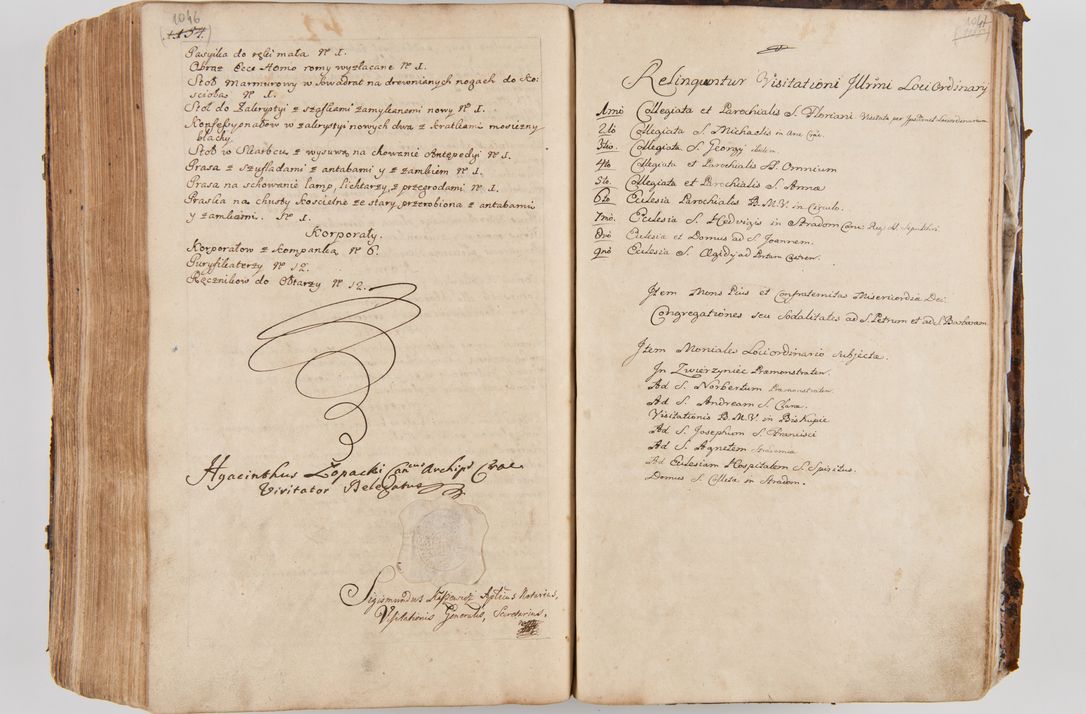 1046
1157
Pasyika do ręki mała N° 1.
Obraz Ecce Homo romy wyzłacane N° 1.
Stoł Marmurowy w kwadrat na drewnianych nogach do Ko=
scioła N° 1.
Stoł do Zakrystyi z szaflami zamykanemi nowy N° 1.
Konfessyonałow w zakrystyi nowych dwa z kratkami mosiężny
blachy
Stoł w Skarbcu z wysuwą na chowanie Antepedyi N° 1.
Prasa z szufladami z antabami y z zamkiem N° 1.
Prasa na schowanie lamp, lichtarzy, z przegrodami N° 1.
Praska na chusty koscielne ze stary przerobiona z antabami
y zamkami. N° 1.
Korporały.
Korporałow z kompanką N° 6.
Puryfikaterzy N° 12.
Ręcznikow do Ołtarzy N° 12.
Hyacinthus Łopacki Archip Crac
Visitator Delegatus
Sigismundus Notarius,
Visitationis Generalis, Secretarius.
Relinquntur Visitationi Illrmi Loci Ordinary
1mo Collegiata et Parochialis S. Floriani Visitata per
2do Collegiata S. Michaelis in Arce Crac.
3tio. Collegiata S. Georgy ibidem.
4to Collegiata et Parochialis SS. Omnium
5to. Collegiata et Parochialis S. Anna
6to Eclesia Parochialis B.M.V. in Circulo.
7mo. Eclesia S. Hedvigis in Stradom
8vo Eclesia et Domus ad S. Joannem.
9no Eclesia S. Ægidy ad Portam Castren.
Item Mons Pius et Confraternitas Misericordia Dei
Congregationes seu Sodalitates ad S. Petrum et ad S. Barbaram
Item Moniales Loci ordinario subjectæ.
In Zwierzyniec Præmonstraten.
Ad S. Norbertum Præmonstraten.
Ad S. Andream S. Claræ.
Visitationis B.M.V. in Biskupie
Ad S. Josephum S. Francisci
Ad S. Agnetem
Ad Eclesiam Hospitalem S. Spiritus.
Domus S. Colleta in Stradom.